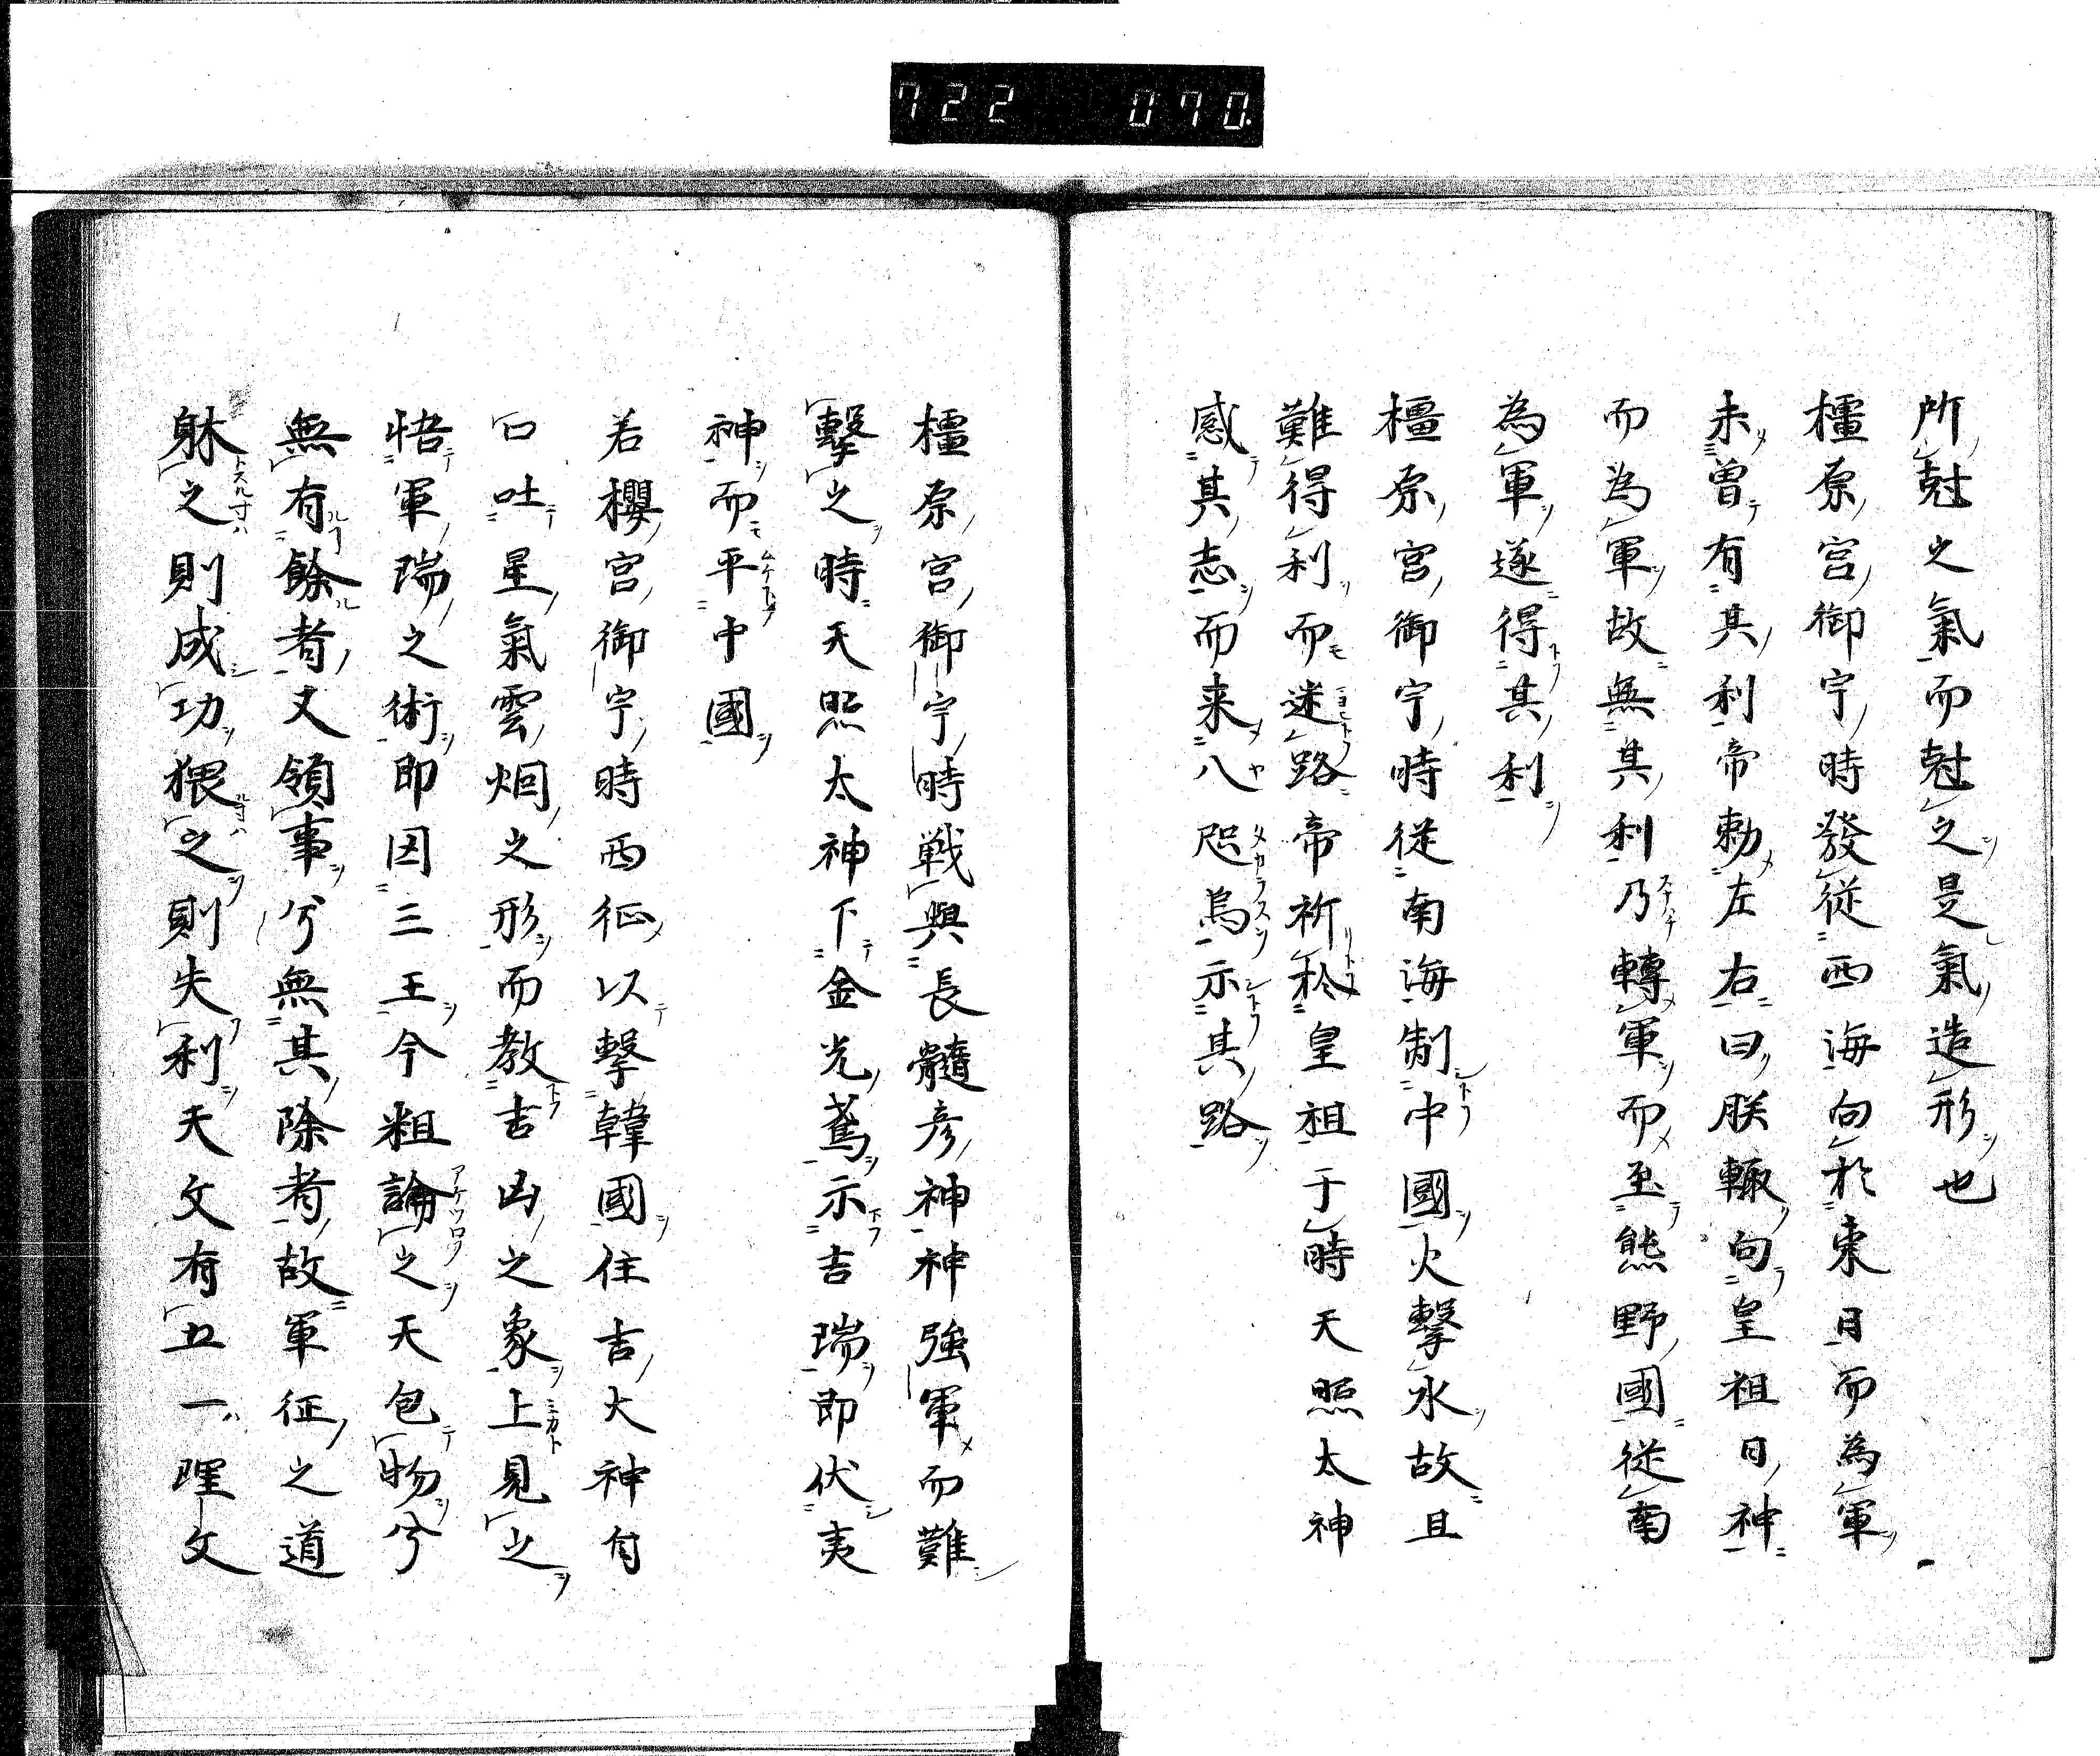 722 070.
所尅之氣而尅之是氣造形也
橿原宮御宁時發從西海向於東日而為軍
未曽有其利帝勅左右曰朕輙向皇祖日神
而為軍故無其利乃轉軍而至熊野國從南
為軍遂得其利
橿原宮御宁時從南海制中國火擊水故且
難得利而迷路帝祈於皇祖于時天照太神
感其志而来八咫烏示其路
橿原宮御宁時戦與長髓彦神神強軍而難
擊之時天照太神下金光鳶示吉瑞即伏夷
神而平中國
若櫻宮御宁時西征以擊韓國住吉大神自
口吐星氣雲烟之形而教吉凶之象上見之
悟軍瑞之術即因三王今粗論之天包物兮
無有餘者又領事兮無其除者故軍征之道
躰之則成功猥之則失利天文有五一理文